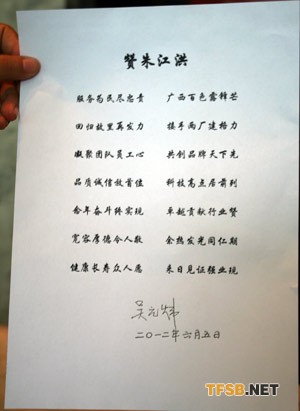 赞朱江洪
服务为民尽忠责 广西百色露锋芒
回归故里再发力 接手两厂建格力
凝聚团队员工心 共创品牌天下先
品质诚信放首位 科技高点居前列
余年奋斗终实现 卓越贡献行业赞
宽容厚德令人敬 余热发光同仁期
健康长寿众人愿 来日见证强业现
吴元炜
二〇一二年六月五日
TFSB.NET